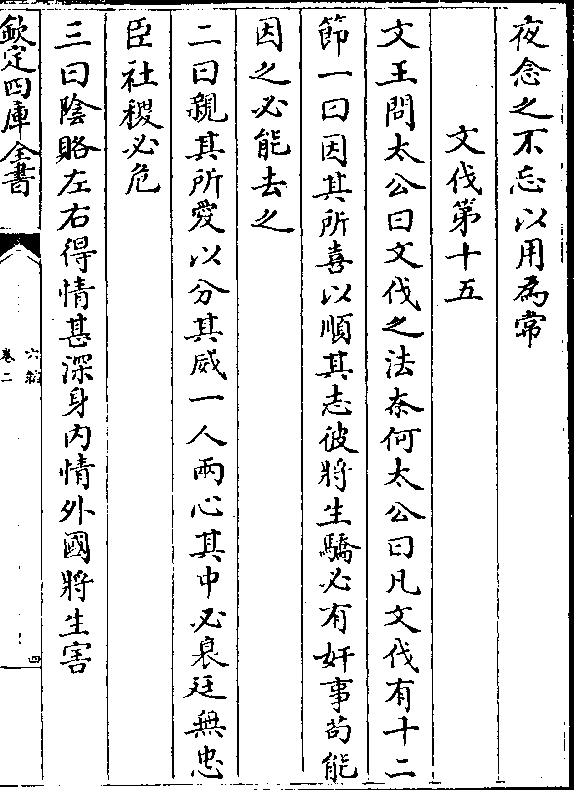 夜念之不忘以用為常
文伐第十五
文王問太公曰文伐之法奈何太公曰凡文伐有十二
節一曰因其所喜以順其志彼將生驕必有奸事苟能
因之必能去之
二曰親其所愛以分其威一人兩心其中必衰廷無忠
臣社稷必危
三曰陰賂左右得情甚深身內情外國將生害
欽定四庫全書
六韜
卷二
四